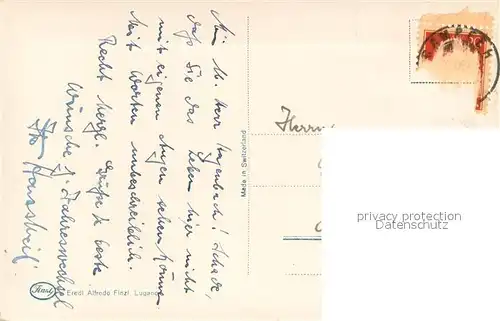 Mein lb. Herr Hagenbach! Schade,
daß Sie das Leben hier nicht
mit eigenen Augen sehen können.
Mit Worten unbeschreiblich.
Recht herzl. Grüße & beste
Wünsche z. Jahreswechsel
Ihr
Herrn
Made in Switzerland
Finzi
Eredi Alfredo Finzi, Lugano
privacy protection
Datenschutz